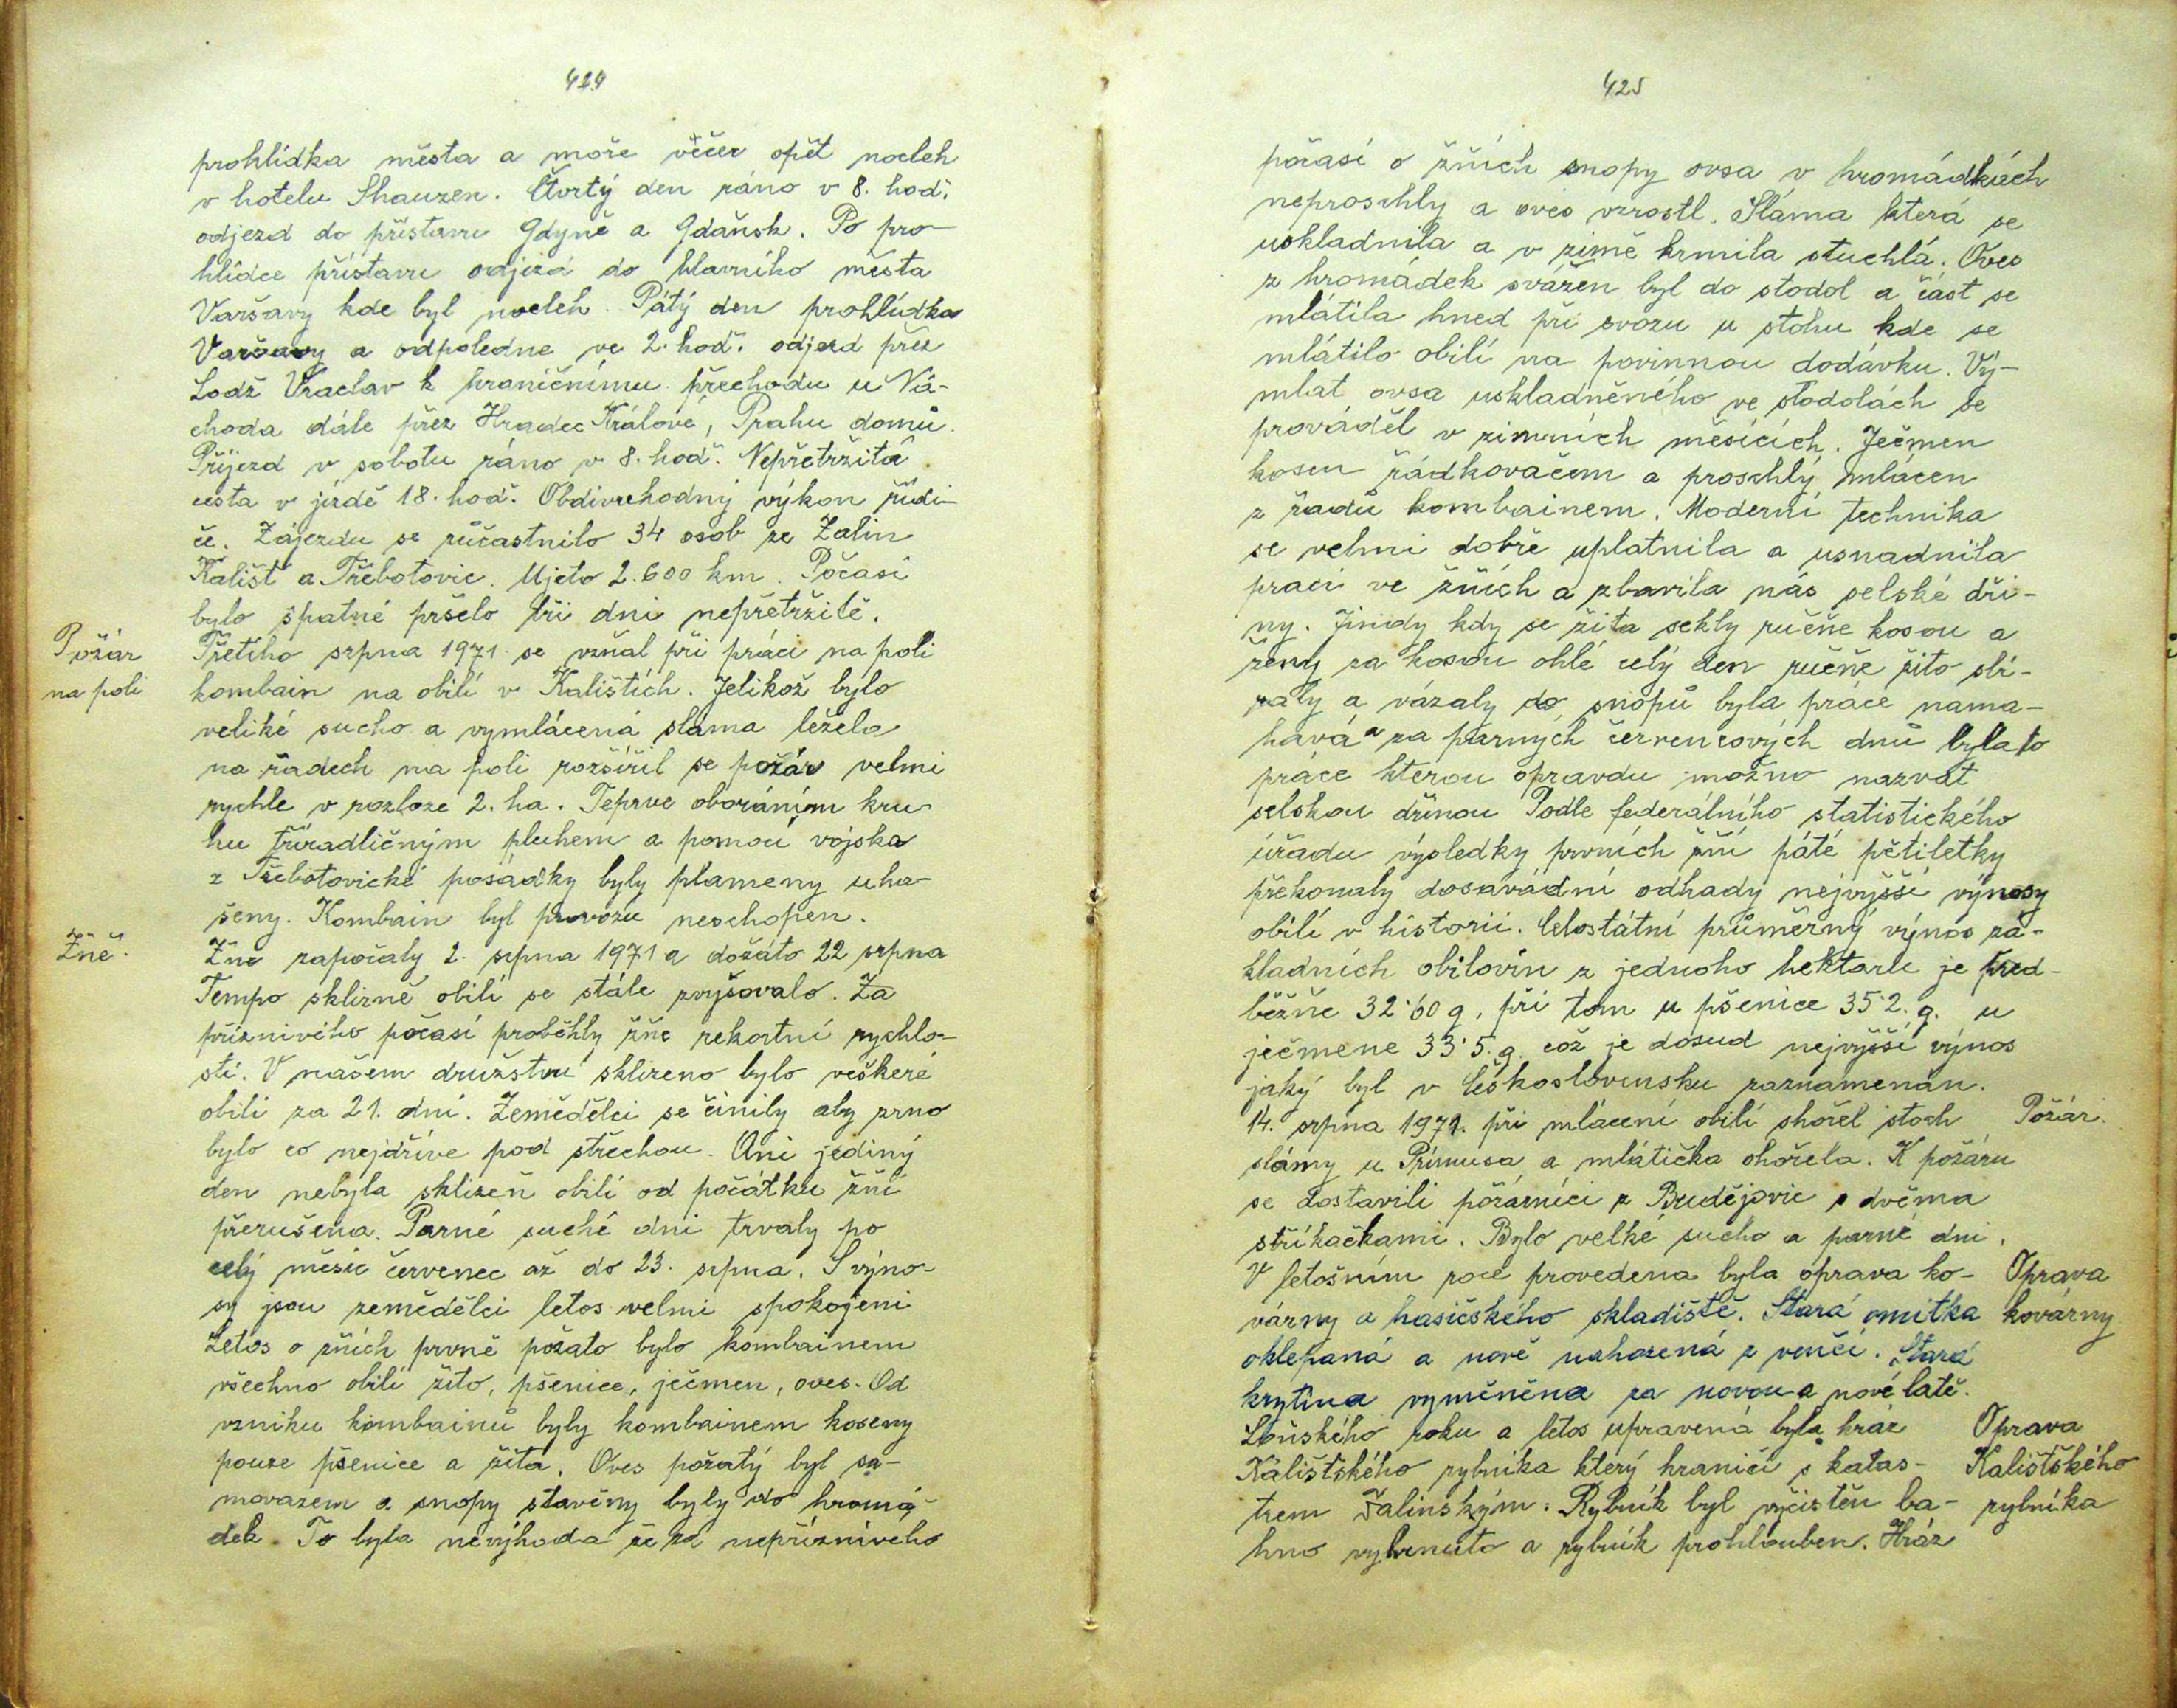 424
prohlídka města a moře věčer opět nocleh
v hotelu Shauzen. Čtvrtý den ráno v 8. hoď.
odjezd do přístavu Gdyně a Gdaňsk. Po pro-
hlídce přístavu odjezd do hlavního města
Varšavy kde byl nocleh. Pátý den prohlídka
Varšavy a odpoledne ve 2. hoď. odjezd přez
Lodž Vraclav k hraničnímu přechodu u Ná-
choda dále přez Hradec Králové, Prahu domů.
Příjezd v sobotu ráno v 8. hoď. Nepřetržitá
cesta v jízdě 18. hoď. Obdivuhodný výkon řidi-
če. Zájezdu se zůčastnilo 34 osob ze Zalin
Kališť a Třebotovic. Ujeto 2.600 km. Počasí
bylo špatné pršelo tři dni nepřetržitě.
Požár
na poli
Třetího srpna 1971 se vzňal při práci na poli
kombain na obilí v Kalištích. Jelikož bylo
veliké sucho a vymlácená sláma ležela
na řadech na poli rozšířil se požár velmi
rychle v rozloze 2. ha. Teprve oboráním kru-
hu tříradličným pluhem a pomocí vojska
z Třebotovické posádky byly plameny uha-
šeny. Kombain byl provozu neschopen.
Žně.
Žně započaly 2. srpna 1971 a dožáto 22 srpna
Tempo sklizně obilí se stále zvyšovalo. Za
příznivého počasí proběhly žně rekortní rychlo-
stí. V našem družstvu sklizeno bylo veškeré
obilí za 21. dní. Zemědělci se činily aby zrno
bylo co nejdříve pod střechou. Ani jediný
den nebyla sklizeň obilí od počátku žní
přerušena. Parné suché dni trvaly po
celý měsíc červenec až do 23. srpna. S výno-
sy jsou zemědělci letos velmi spokojeni
Letos o žních prvně požato bylo kombainem
všechno obilí žito, pšenice, ječmen, oves. Od
vzniku kombainů byly kombainem koseny
pouze pšenice a žita. Oves požatý byl sa-
movazem a snopy stavěny byly do hromá-
dek. To byla nevýhoda že za nepříznivého
425
počasí o žních snopy ovsa v hromádkách
neproschly a oves vzrostl. Sláma která se
uskladnila a v zimě krmila stuchlá. Oves
z hromádek svážen byl do stodol a část se
mlátila hned při svozu u stohu kde se
mlátilo obilí na povinnou dodávku. Vý-
mlat ovsa uskladněného ve stodolách se
prováděl v zimních měsících. Ječmen
kosen řádkovačem a proschlý mlácen
z řadů kombainem. Moderní technika
se velmi dobře uplatnila a usnadnila
práci ve žních a zbavila nás selské dři-
ny. Jindy kdy se žita sekly ručňe kosou a
ženy za kosou ohlé celý den ručňe žito sbí-
raly a vázaly do snopů byla práce nama-
havá a za parných červencových dnů byla to
práce kterou opravdu možno nazvat
selskou dřinou Podle federálního statistického
úřadu výsledky prvních žní páté pětiletky
překonaly dosavádní odhady nejvyšší výnosy
obilí v historii. Celostátní průměrný výnos zá-
kladních obilovin z jednoho hektaru je před-
běžňe 32·60 q, při tom u pšenice 35·2. q. u
ječmene 33·5. q. což je dosud nejvyšší výnos
jaký byl v Československu zaznamenán.
14. srpna 1971. při mlácení obilí shořel stoch
Požár.
slámy u Prímusa a mlátička ohořela. K požáru
se dostavili požárníci z Budějovic s dvěma
stříkačkami. Bylo velké sucho a parné dni.
V letošním roce provedena byla oprava ko-
Oprava
várny a hasičského skladiště. Stará omítka
kovárny
oklepaná a nově nahozená z venčí. Stará
krytina vyměněna za novou a nové latě.
Loňského roku a letos upravená byla hráz
Oprava
Kališťského rybníka který hraničí s katas-
Kališťského
trem Žalinským. Rybník byl vyčistěn ba-
rybníka
hno vyhrnuto a rybník prohlouben. Hráz